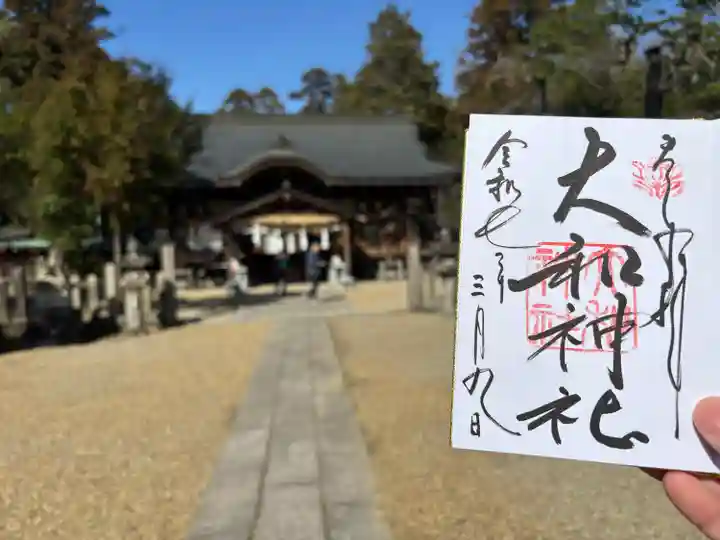 奉拝
大和神社
令和七年
三月九日